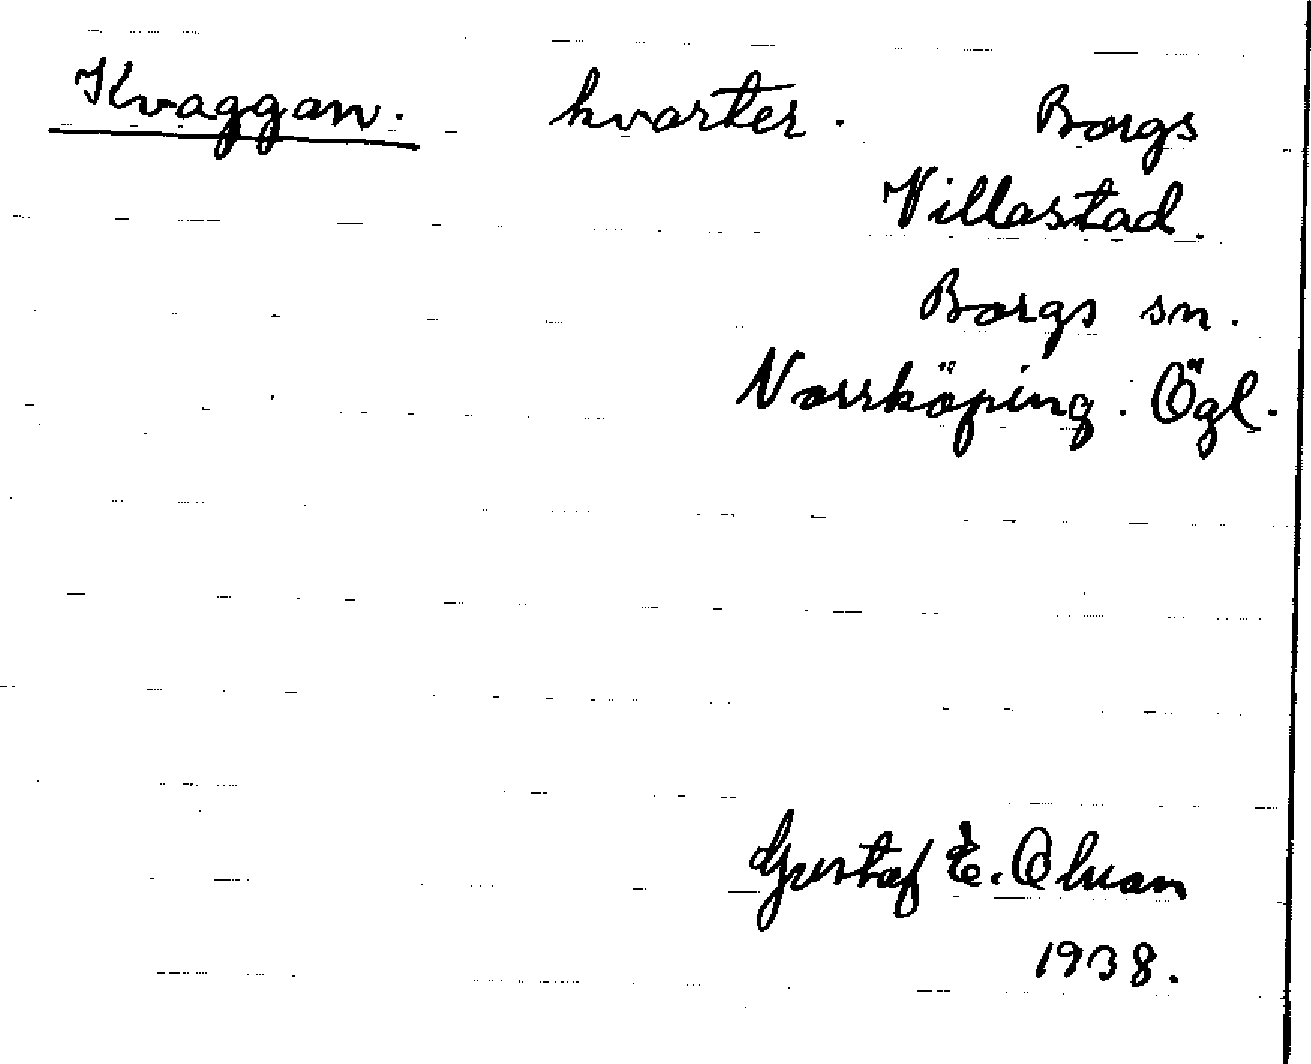 Kvaggan. kvarter. Borgs
Villastad.
Borgs sn.
Norrköping. Ögl.
Gustaf E. Olsson
1938.